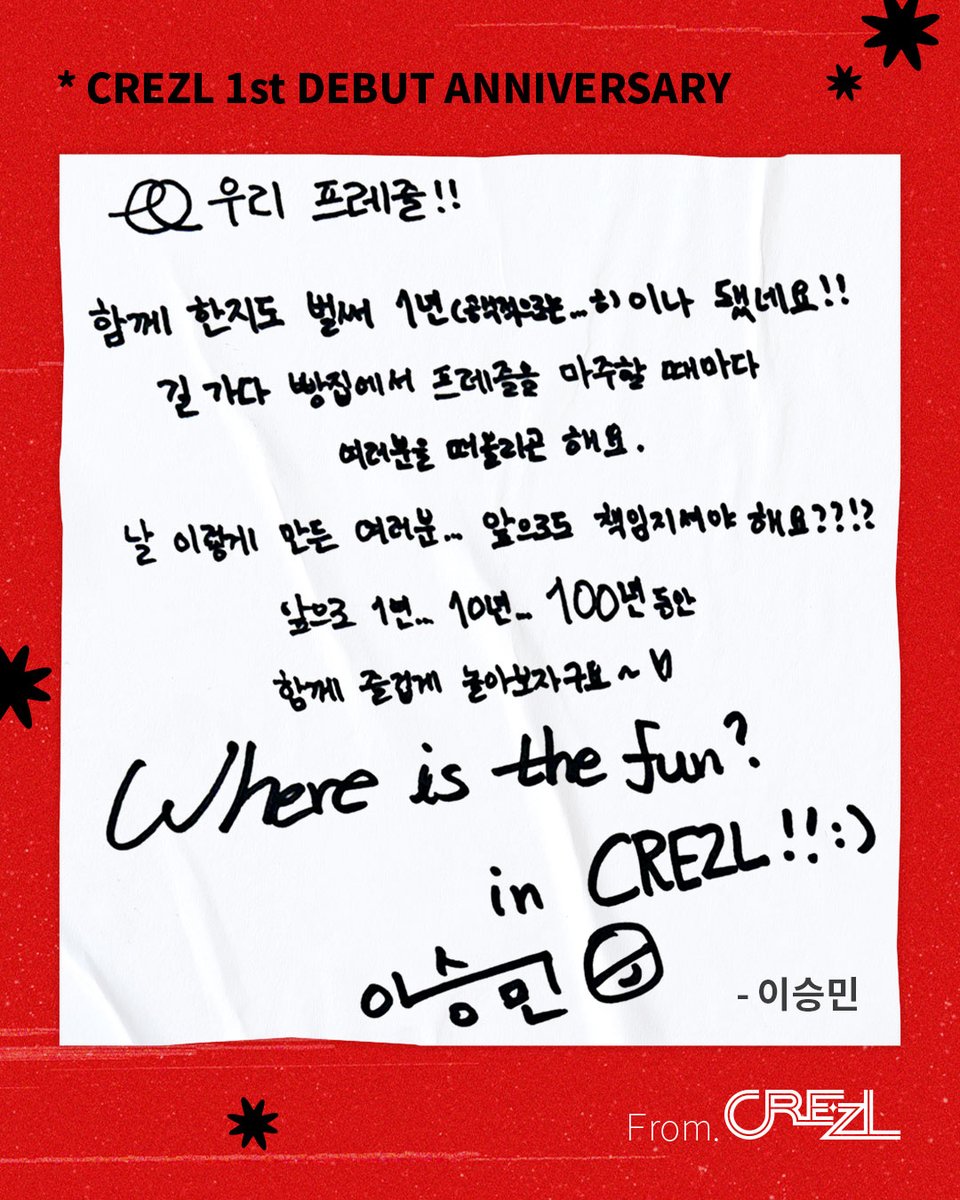 * CREZL 1st DEBUT ANNIVERSARY
우리 프레즐!!
함께 한지도 벌써 1년(공식적으로는...ㅎ)이나 됐네요!!
길 가다 빵집에서 프레즐을 마주할 때마다
여러분을 떠올리곤 해요.
날 이렇게 만든 여러분... 앞으로도 책임지셔야 해요??!?
앞으로 1년... 10년... 100년 동안
함께 즐겁게 놀아보자구요~
Where is the fun?
in CREZL!!:)
이승민
- 이승민
From. CREZL